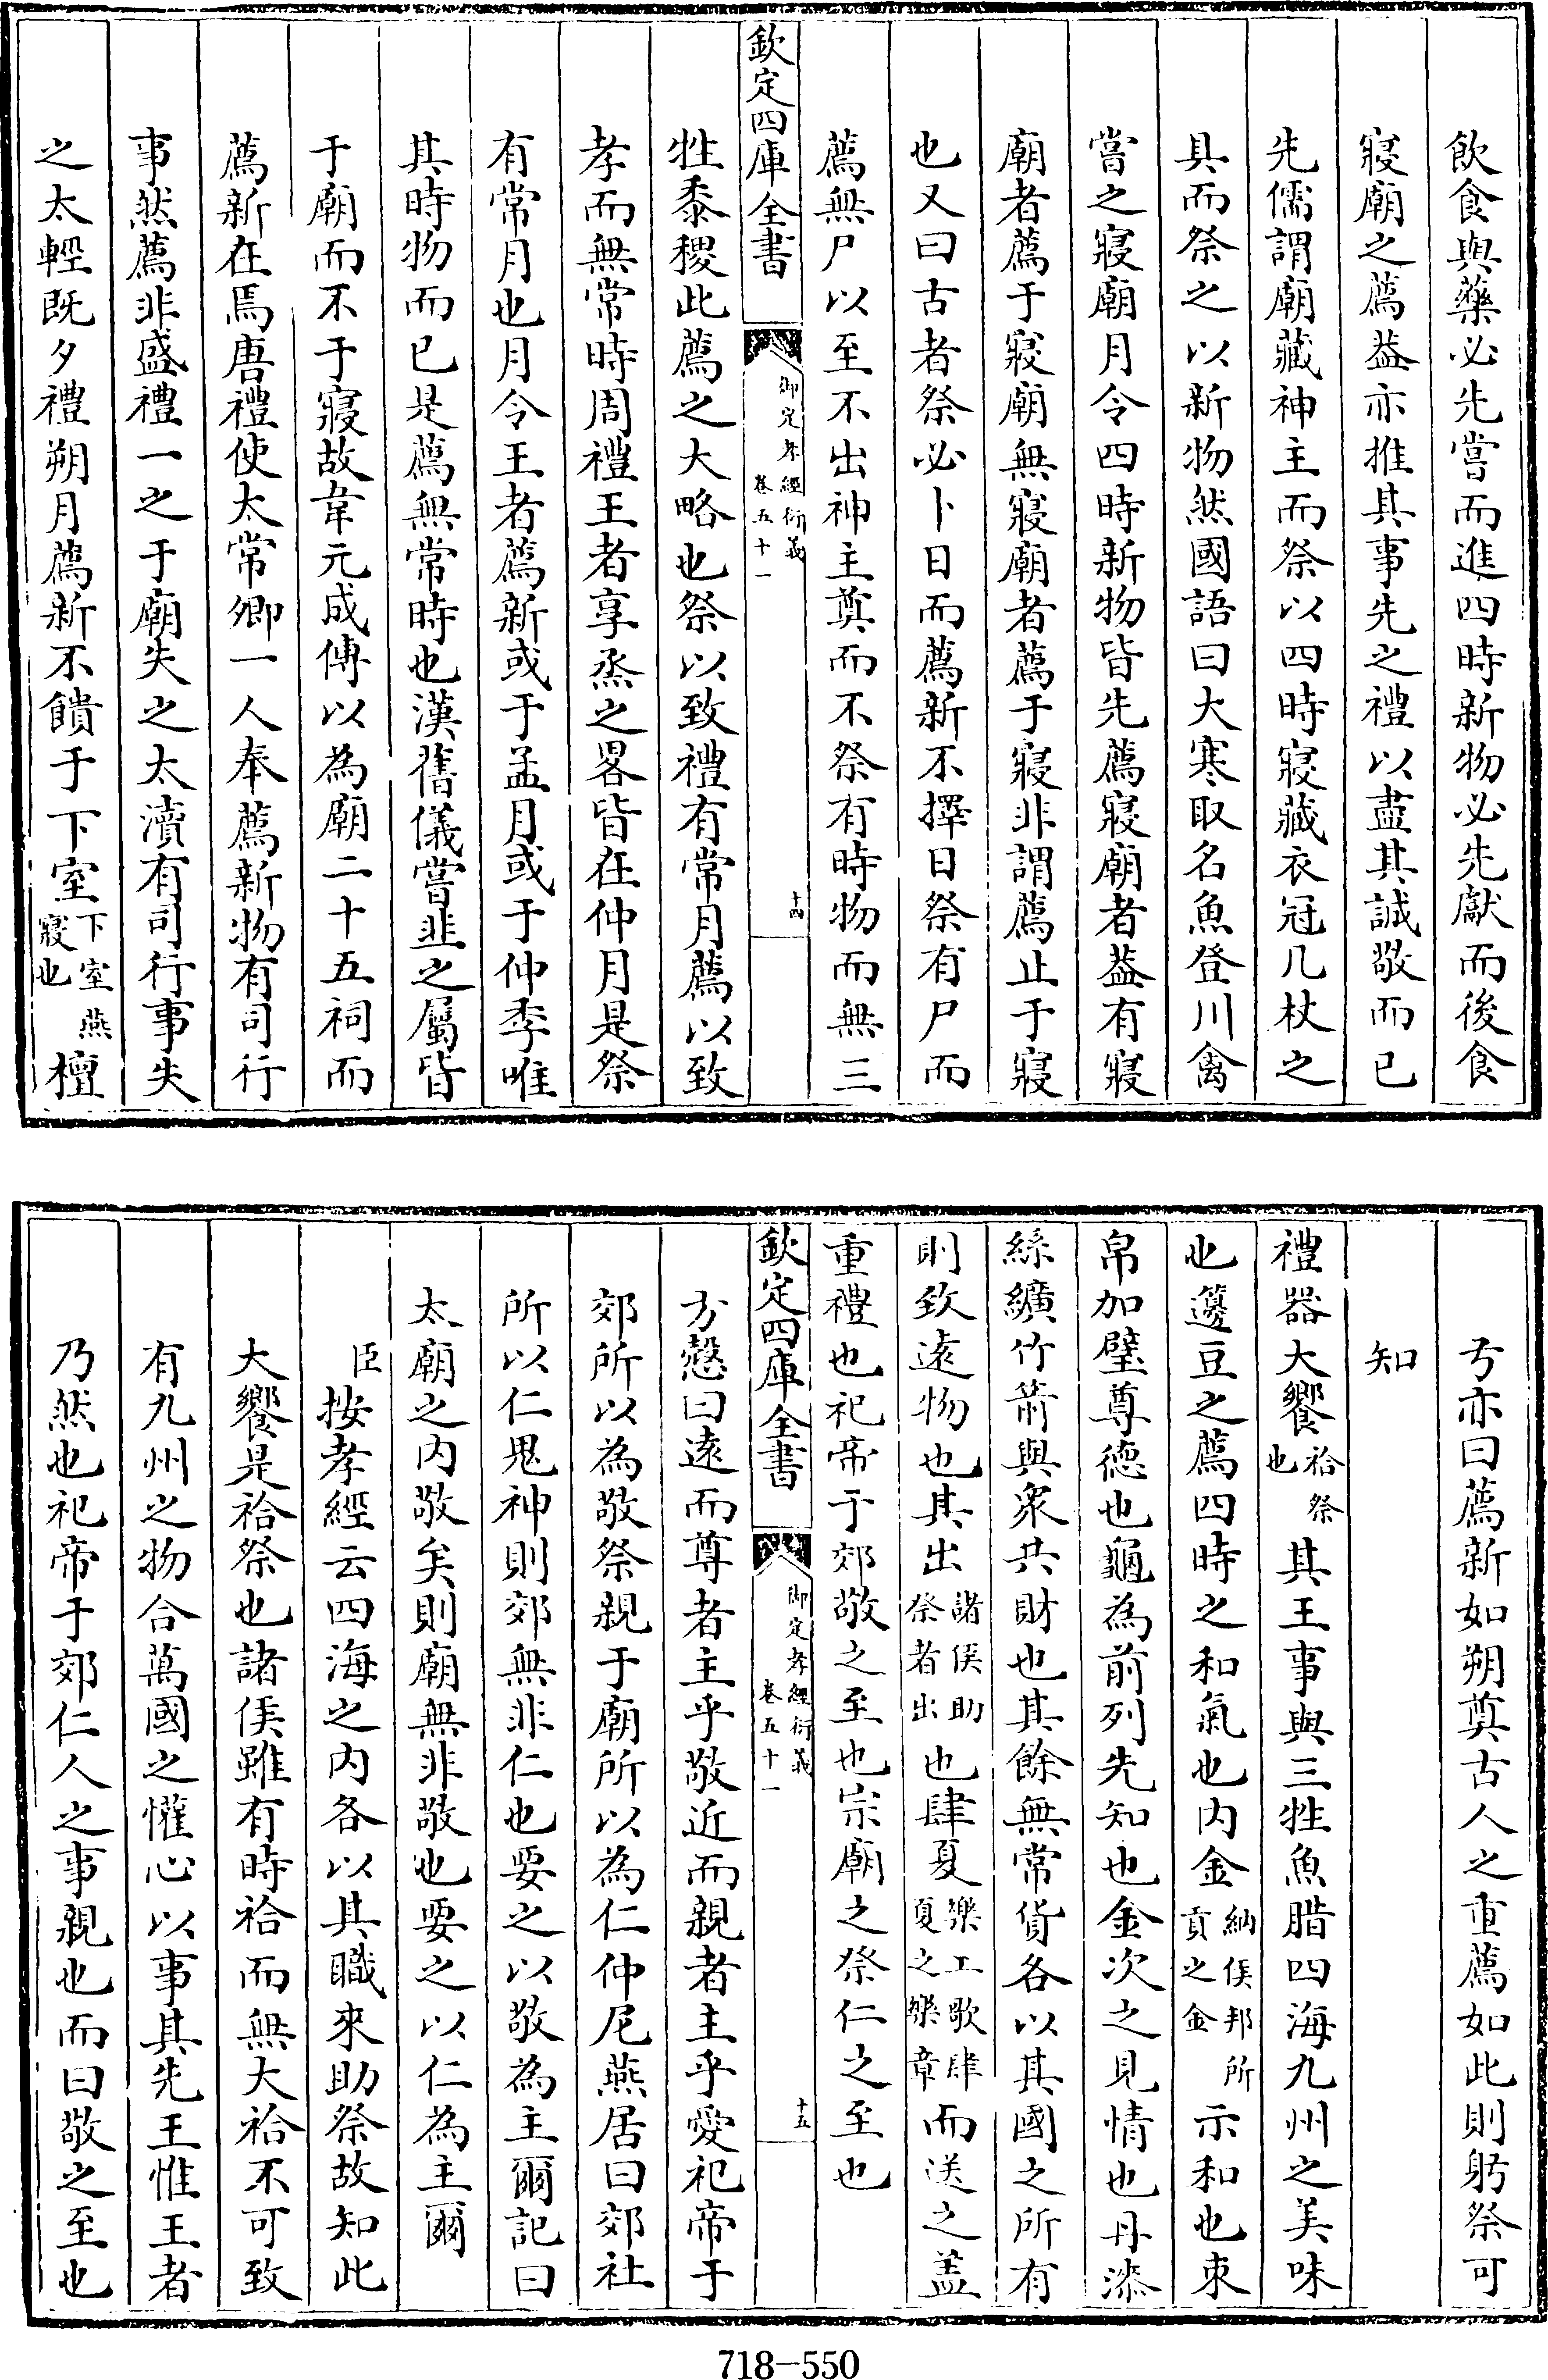 飲食與藥必先嘗而進四時新物必先獻而後食
寢廟之薦葢亦推其事先之禮以盡其誠敬而已
先儒謂廟藏神主而祭以四時寢藏衣冠几杖之
具而祭之以新物然國語曰大寒取名魚登川禽
嘗之寢廟月令四時新物皆先薦寢廟者葢有寢
廟者薦于寢廟無寢廟者薦于寢非謂薦止于寢
也又曰古者祭必卜日而薦新不擇日祭有尸而
薦無尸以至不出神主奠而不祭有時物而無三
欽定四庫全書
御定孝經衍義
卷五十一
十四
牲黍稷此薦之大略也祭以致禮有常月薦以致
孝而無常時周禮王者享烝之畧皆在仲月是祭
有常月也月令王者薦新或于孟月或于仲季唯
其時物而已是薦無常時也漢舊儀嘗韭之屬皆
于廟而不于寢故韋元成傳以為廟二十五祠而
薦新在焉唐禮使太常卿一人奉薦新物有司行
事然薦非盛禮一之于廟失之太瀆有司行事失
之太輕既夕禮朔月薦新不饋于下室下室燕寢也檀
弓亦曰薦新如朔奠古人之重薦如此則躬祭可
知
禮器大饗祫祭也其王事與三牲魚腊四海九州之美味
也籩豆之薦四時之和氣也內金納侯邦所貢之金示和也束
帛加璧尊德也龜為前列先知也金次之見情也丹漆
絲纊竹箭與衆共財也其餘無常貨各以其國之所有
則致遠物也其出諸侯助祭者出也肆夏樂工歌肆夏之樂章而送之盖
重禮也祀帝于郊敬之至也宗廟之祭仁之至也
欽定四庫全書
御定孝經衍義
卷五十一
十五
方慤曰遠而尊者主乎敬近而親者主乎愛祀帝于
郊所以為敬祭親于廟所以為仁仲尼燕居曰郊社
所以仁鬼神則郊無非仁也要之以敬為主爾記曰
太廟之內敬矣則廟無非敬也要之以仁為主爾
臣按孝經云四海之內各以其職來助祭故知此
大饗是祫祭也諸侯雖有時祫而無大祫不可致
有九州之物合萬國之懽心以事其先王惟王者
乃然也祀帝于郊仁人之事親也而曰敬之至也
718-550